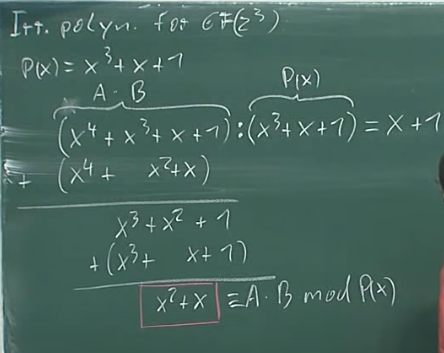 Irr. polyn. for GF(2³)
P(x) = x³ + x + 1
A · B P(x)
(x⁴ + x³ + x + 1) : (x³ + x + 1) = x + 1
+ (x⁴ + x² + x)
x³ + x² + 1
+ (x³ + x + 1)
x² + x ≡ A · B mod P(x)